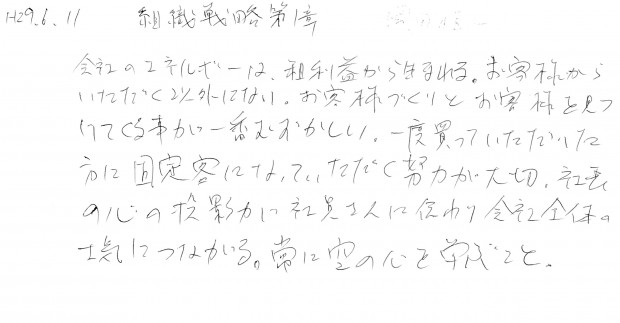 H29.6.11 組織戦略第1章
会社のエネルギーは、粗利益から生まれる。お客様から
いただく以外にない。お客様づくりとお客様を見つ
けてくる事が一番むずかしい。一度買っていただいた
方に固定客になっていただく努力が大切。社長
の心の投影が社員さんに伝わり会社全体の
士気につながる。常に空の心を学ぶこと。